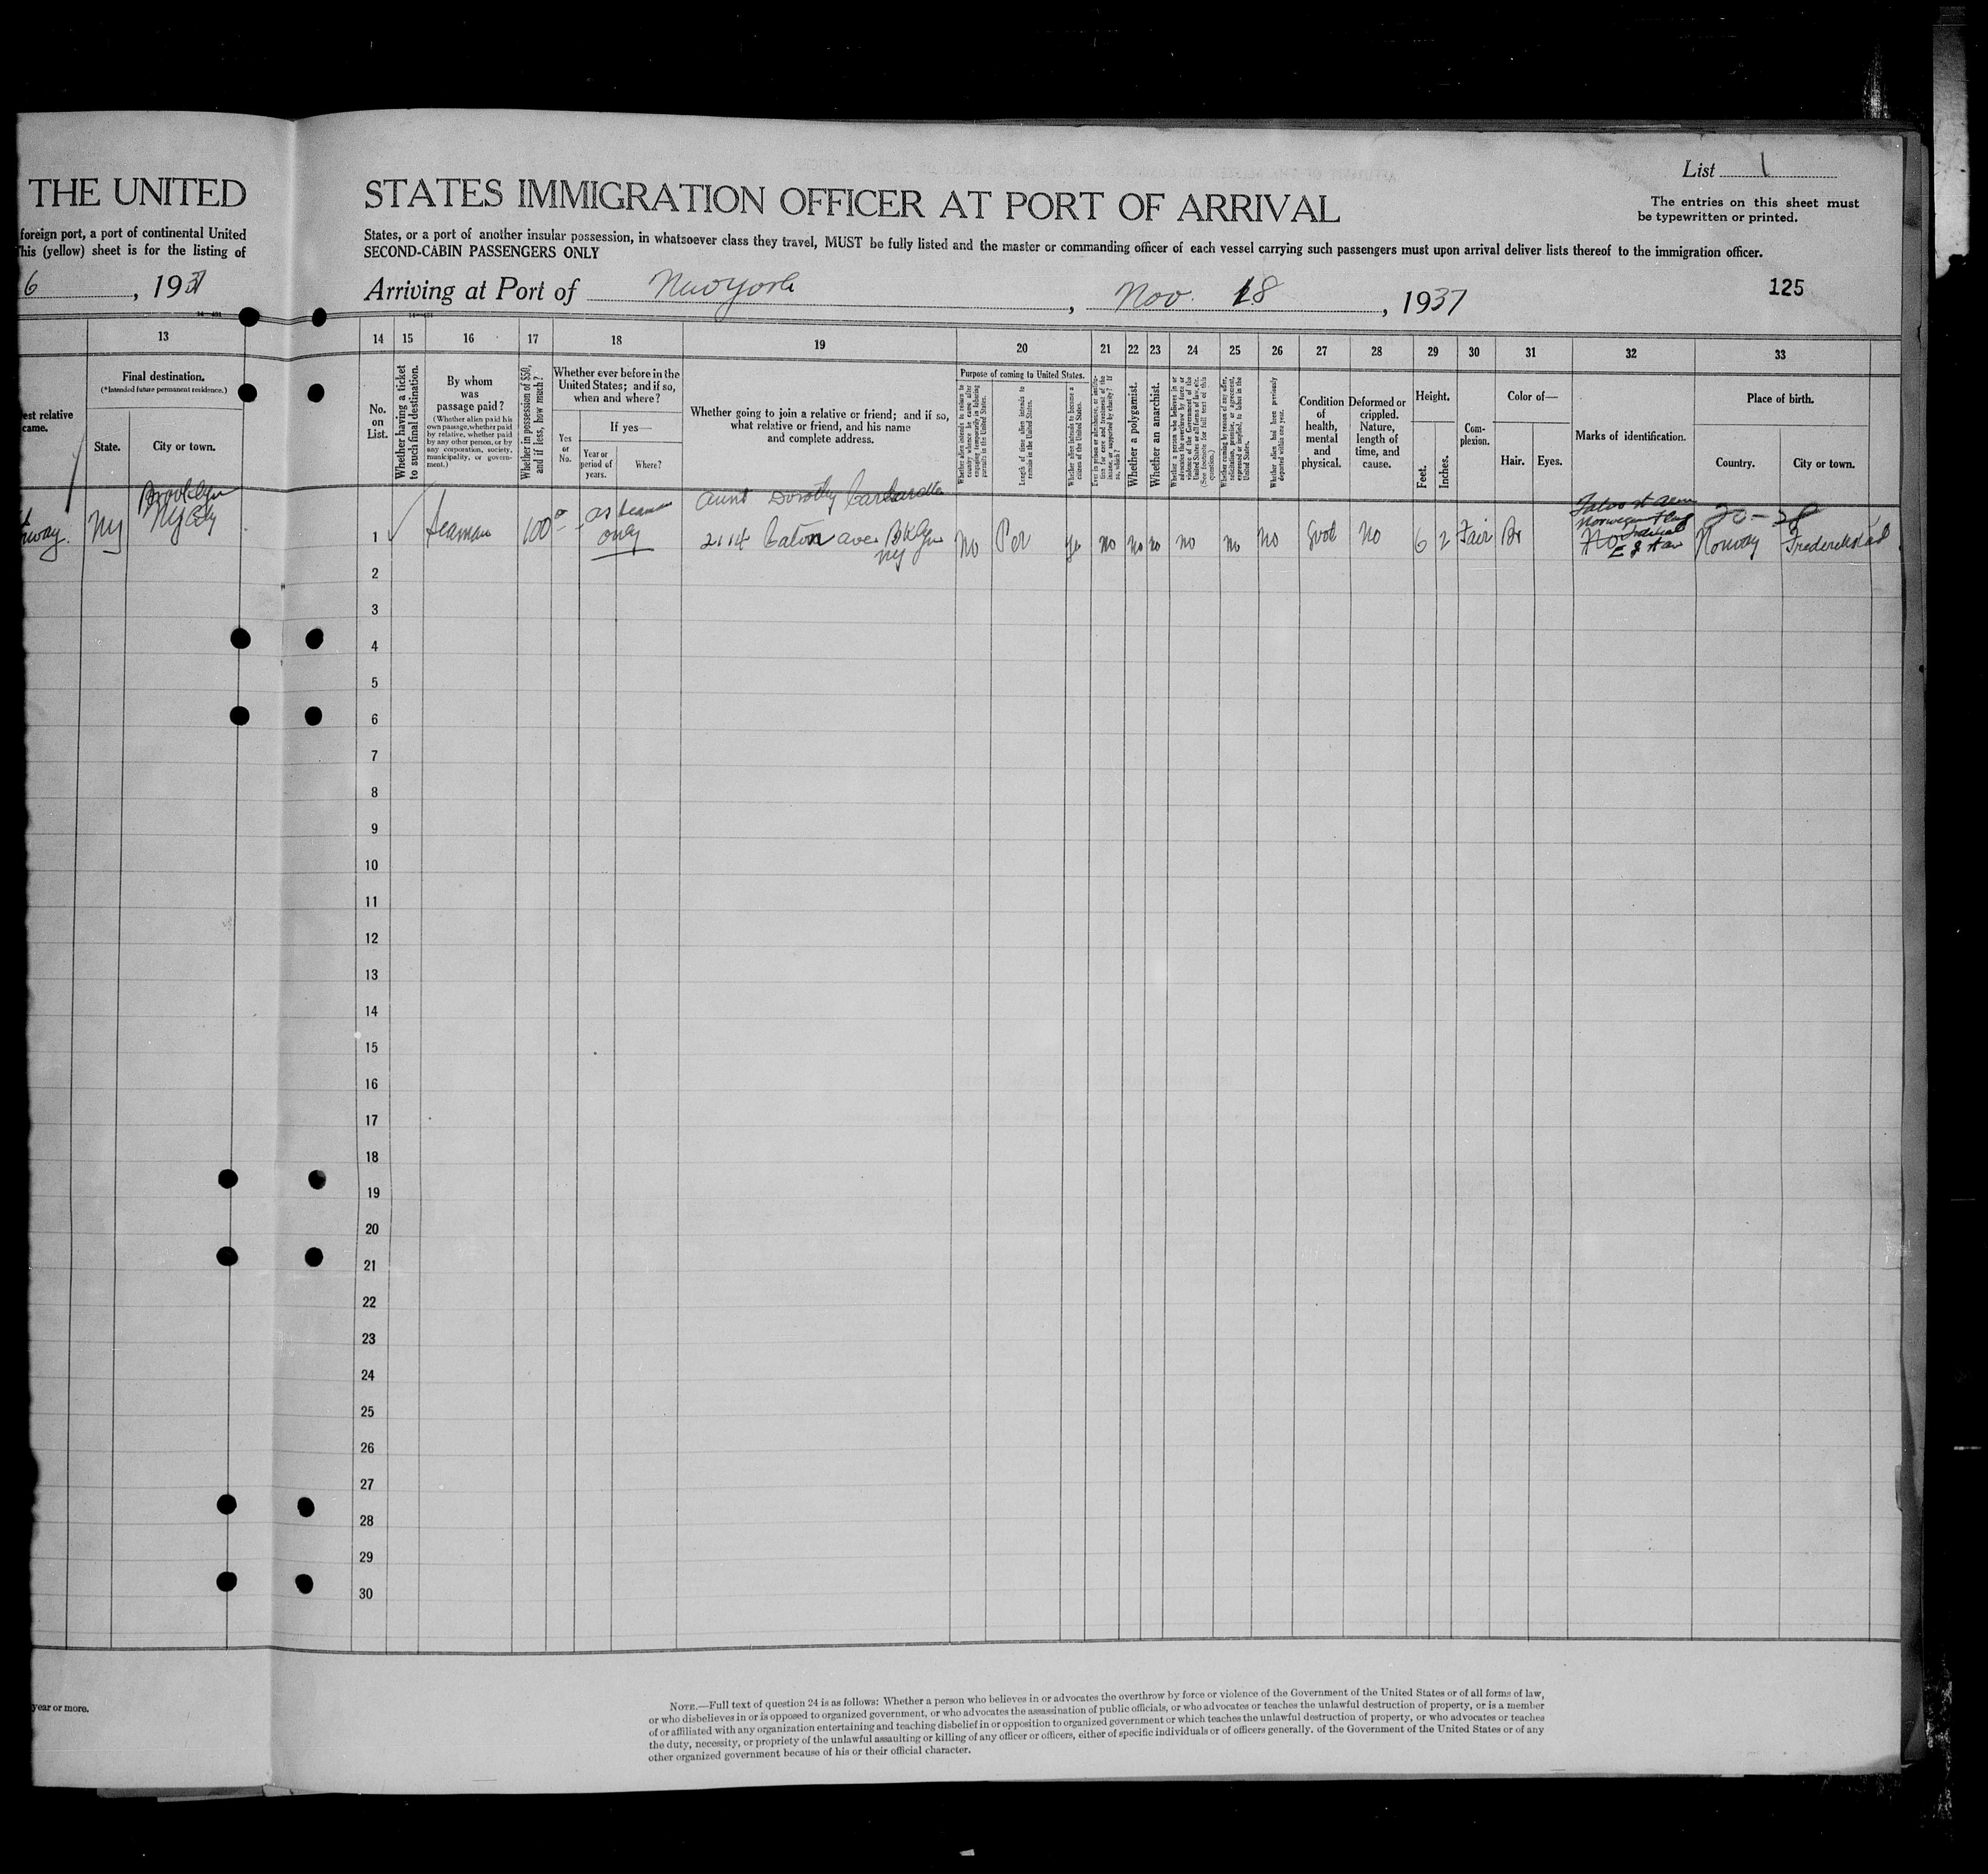 List 1
THE UNITED STATES IMMIGRATION OFFICER AT PORT OF ARRIVAL
The entries on this sheet must
be typewritten or printed.
foreign port, a port of continental United States, or a port of another insular possession, in whatsoever class they travel, MUST be fully listed and the master or commanding officer of each vessel carrying such passengers must upon arrival deliver lists thereof to the immigration officer.
This (yellow) sheet is for the listing of SECOND-CABIN PASSENGERS ONLY
6, 1937
Arriving at Port of New York, Nov. 18, 1937
125
13 14 15 16 17 18 19 20 21 22 23 24 25 26 27 28 29 30 31 32 33
est relative
came.
Final destination.
(*Intended future permanent residence.)
State.
City or town.
No.
on
List.
Whether having a ticket
to such final destination.
By whom
was
passage paid?
(Whether alien paid his
own passage, whether paid
by relative, whether paid
by any other person, or by
any corporation, society,
municipality, or govern-
ment.)
Whether in possession of $50,
and if less, how much?
Whether ever before in the
United States; and if so,
when and where?
Yes
or
No.
If yes—
Year or
period of
years.
Where?
Whether going to join a relative or friend; and if so,
what relative or friend, and his name
and complete address.
Purpose of coming to United States.
Whether alien intends to return to
country whence he came after
engaging temporarily in laboring
pursuits in the United States.
Length of time alien intends to
remain in the United States.
Whether alien intends to become a
citizen of the United States.
Ever in prison or almshouse, or institu-
tion for care and treatment of the
insane, or supported by charity? If
so, which?
Whether a polygamist.
Whether an anarchist.
Whether a person who believes in or
advocates the overthrow by force or
violence of the Government of the
United States or all forms of law, etc.
(See footnote for full text of this
question.)
Whether coming by reason of any offer,
solicitation, promise, or agreement,
expressed or implied, to labor in the
United States.
Whether alien had been previously
deported within one year.
Condition
of
health,
mental
and
physical.
Deformed or
crippled.
Nature,
length of
time, and
cause.
Height.
Feet.
Inches.
Com-
plexion.
Color of—
Hair.
Eyes.
Marks of identification.
Place of birth.
Country.
City or town.
Brooklyn
NY NY City
1 Seaman 100 as seaman
only
Aunt Dorothy
2114 Eaton ave Bklyn
NY
No Per yes no no no no no No Good No 6 2 Fair Br No Norway Frederikstad
2
3
4
5
6
7
8
9
10
11
12
13
14
15
16
17
18
19
20
21
22
23
24
25
26
27
28
29
30
year or more.
NOTE.—Full text of question 24 is as follows: Whether a person who believes in or advocates the overthrow by force or violence of the Government of the United States or of all forms of law,
or who disbelieves in or is opposed to organized government, or who advocates the assassination of public officials, or who advocates or teaches the unlawful destruction of property, or is a member
of or affiliated with any organization entertaining and teaching disbelief in or opposition to organized government or which teaches the unlawful destruction of property, or who advocates or teaches
the duty, necessity, or propriety of the unlawful assaulting or killing of any officer or officers, either of specific individuals or of officers generally, of the Government of the United States or of any
other organized government because of his or their official character.